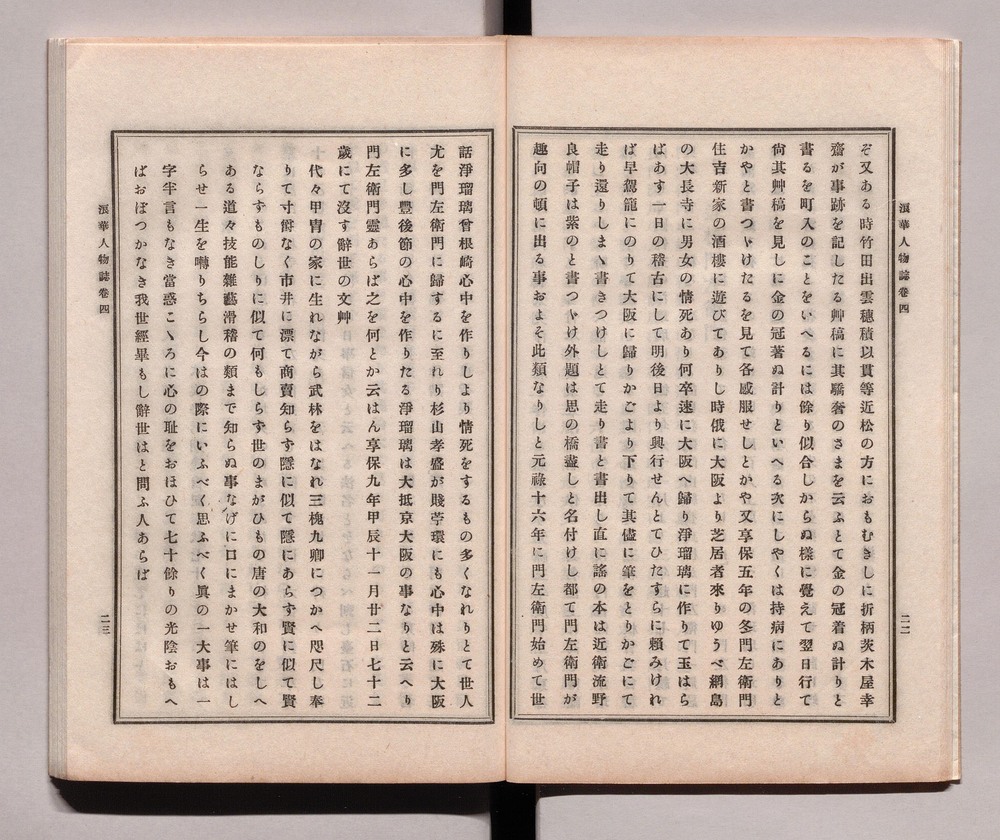 浪華人物誌卷四
二二
ぞ又ある時竹田出雲穗積以貫等近松の方におもむきしに折柄茨木屋幸
齋が事跡を記したる艸稿に其驕奢のさまを云ふとて金の冠着ぬ計りと
書るを町入のことをいへるには餘り似合しからぬ樣に覺えて翌日行て
尙其艸稿を見しに金の冠著ぬ計りといへる次にしやくは持病にありと
かやと書つゞけたるを見て各感服せしとかや又享保五年の冬門左衛門
住吉新家の酒樓に遊びてありし時俄に大阪より芝居者來りゆうべ網島
の大長寺に男女の情死あり何卒速に大阪へ歸り淨瑠璃に作りて玉はら
ばあす一日の稽古にして明後日より興行せんとてひたすらに賴みけれ
ば早駕籠にのりて大阪に歸りかごより下りて其儘に筆をとりかごにて
走り還りしまゝ書きつけしとて走り書と書出し直に謠の本は近衛流野
良帽子は紫のと書つゞけ外題は思の橋盡しと名付けし都て門左衛門が
趣向の頓に出る事およそ此類なりしと元祿十六年に門左衛門始めて世
話淨瑠璃曾根崎心中を作りしより情死をするもの多くなれりとて世人
尤を門左衛門に歸するに至れり杉山孝盛が賤苧環にも心中は殊に大阪
に多し豐後節の心中を作りたる淨瑠璃は大抵京大阪の事なりと云へり
門左衛門靈あらば之を何とか云はん享保九年甲辰十一月廿二日七十二
歲にて沒す辭世の文艸
代々甲冑の家に生れながら武林をはなれ三槐九卿につかへ咫尺し奉
りて寸爵なく市井に漂て商賣知らす隱に似て隱にあらす賢に似て賢
ならすものしりに似て何もしらす世のまがひもの唐の大和のをしへ
ある道々技能雜藝滑稽の類まで知らぬ事なげに口にまかせ筆にはし
らせ一生を囀りちらし今はの際にいふべく思ふべく眞の一大事は一
字半言もなき當惑こゝろに心の耻をおほひて七十餘りの光陰おもへ
ばおぼつかなき我世經畢もし辭世はと問ふ人あらば
浪華人物誌卷四
二三